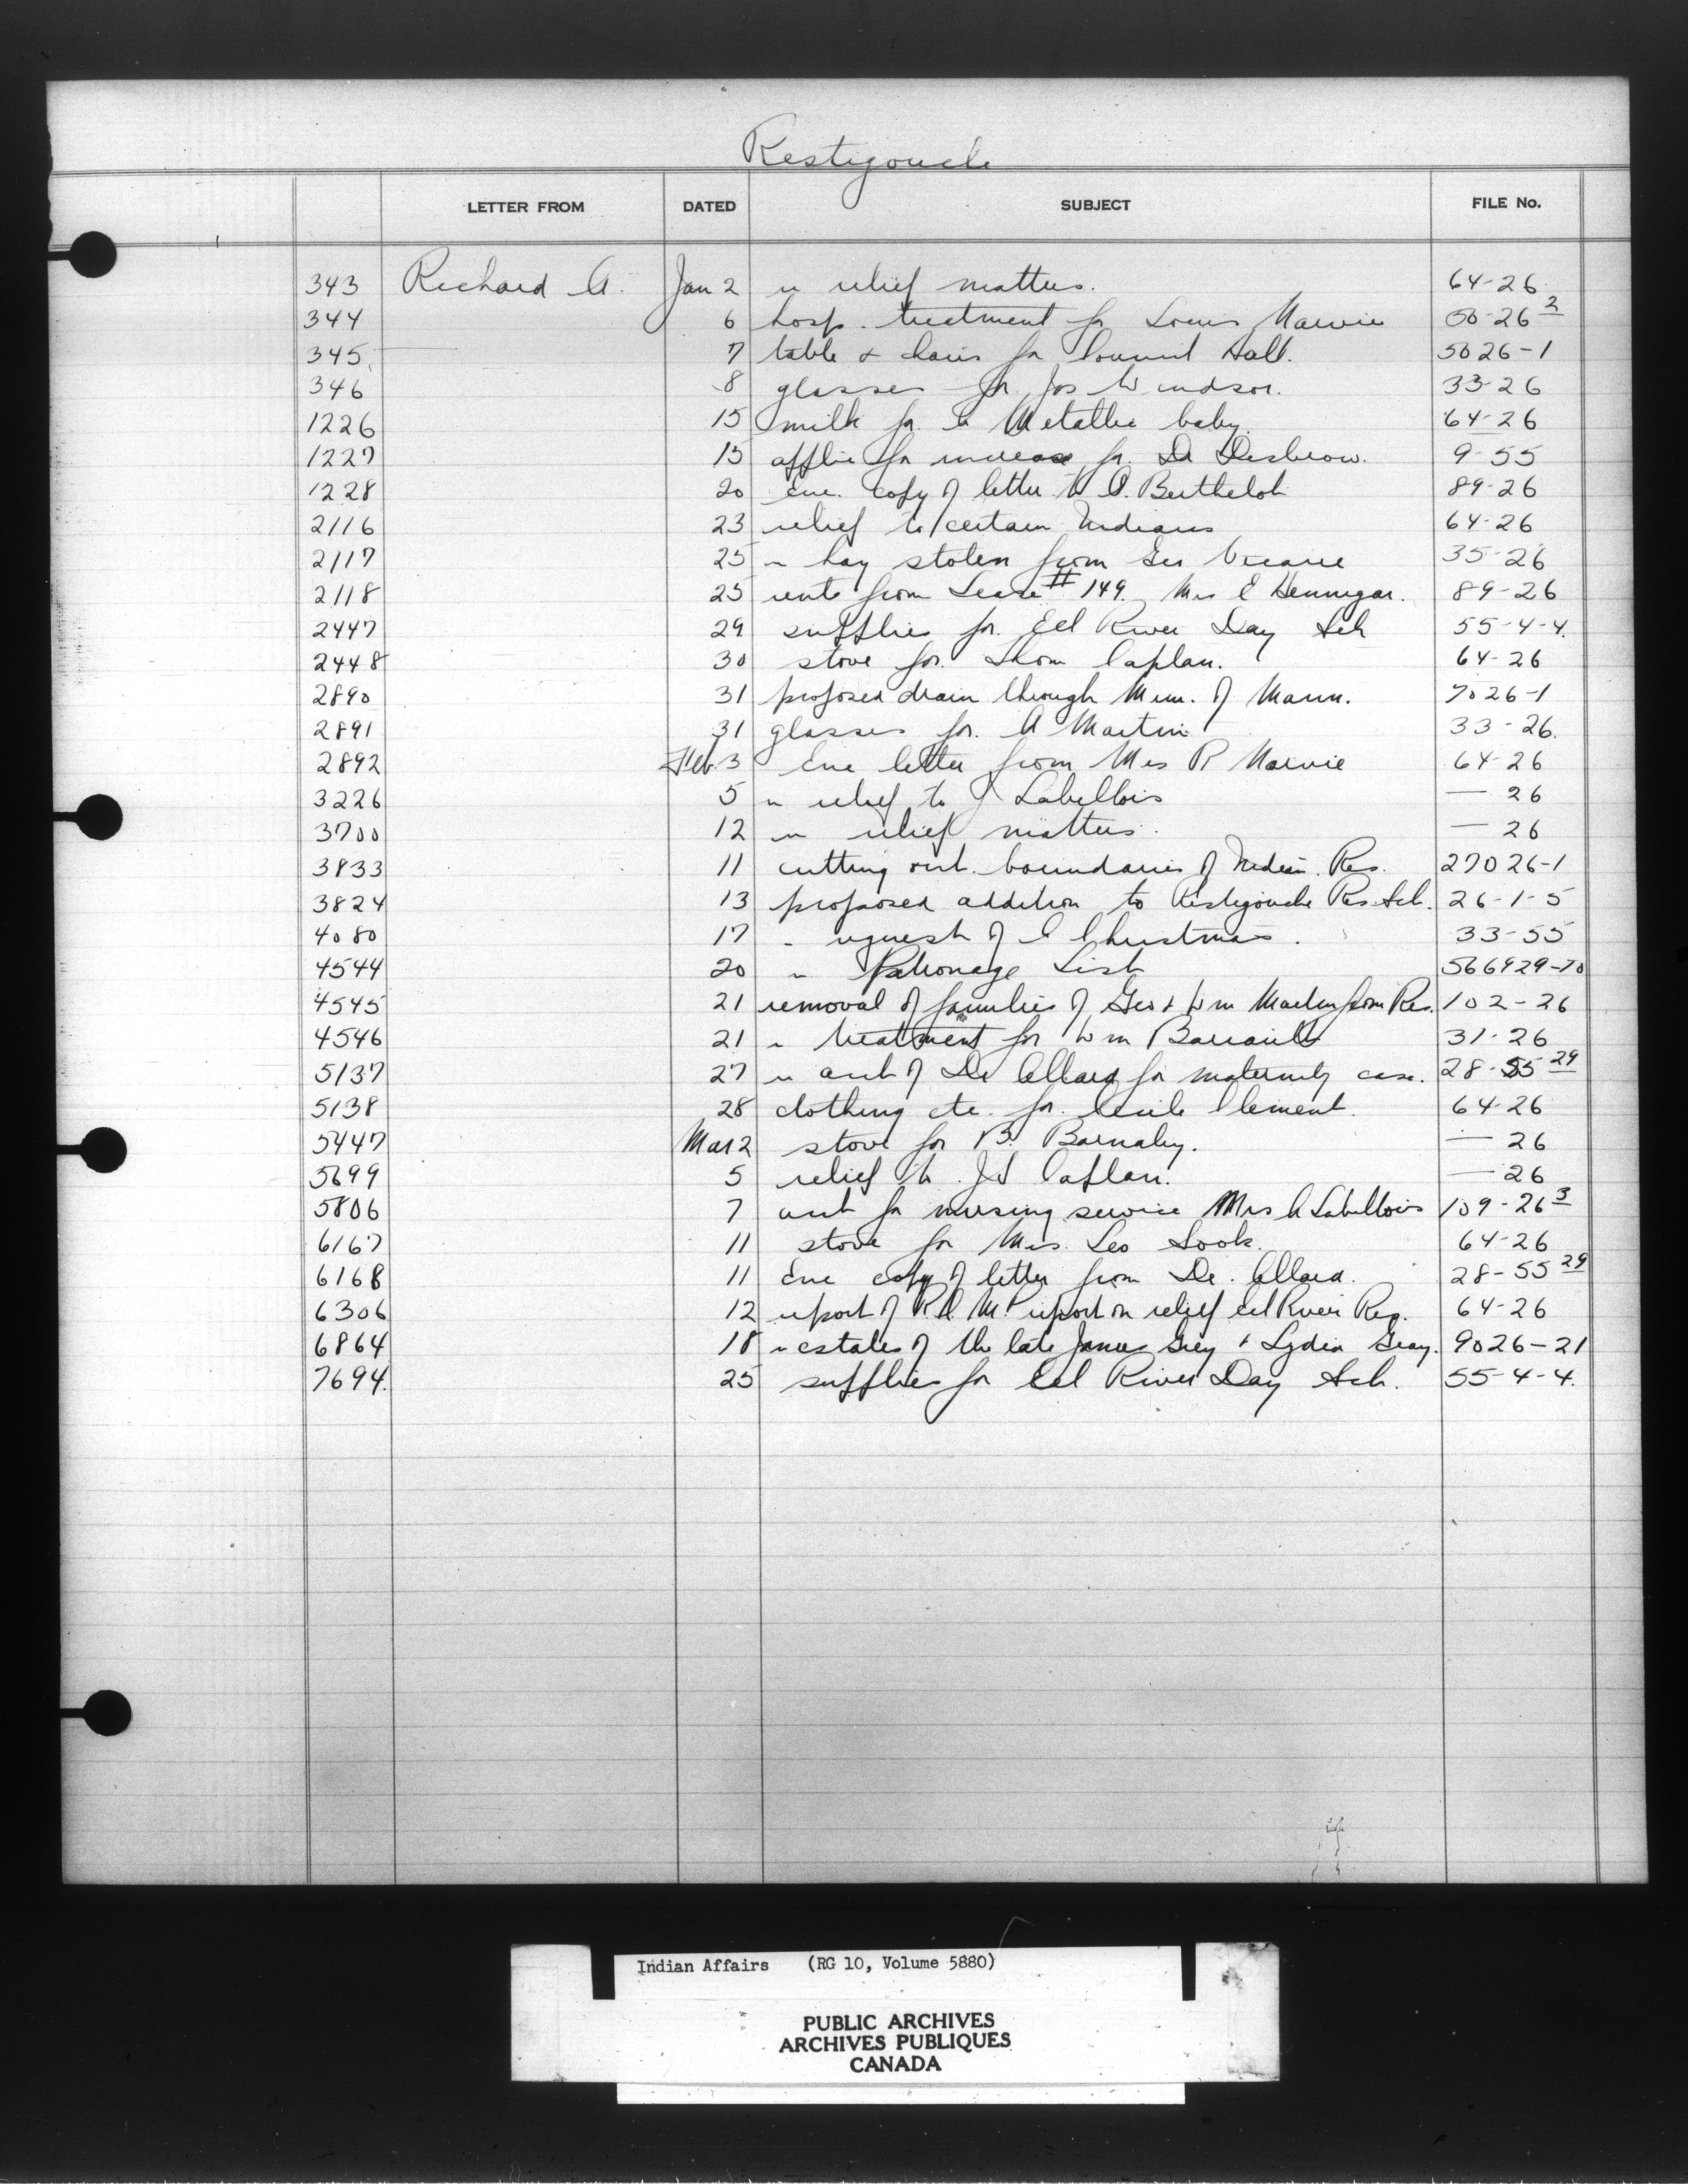 Restigouche
LETTER FROM DATED SUBJECT FILE No.
343 Richard A. Jan 2 re relief matters. 64-26
344 6 hosp. treatment for Louis Marvie 50-26 2
345 7 table & chairs for Council Hall. 5026-1
346 8 glasses for Jos Windsor. 33-26
1226 15 milk for Metallic baby. 64-26
1227 15 applic for increase for Dr Desbrow. 9-55
1228 20 Enc. copy of letter to Berthelot 89-26
2116 23 relief to certain Indians 64-26
2117 25 re hay stolen from Geo Vicaire 35-26
2118 25 rents from Lease # 149. Mrs E Hennigar. 89-26
2447 29 supplies for Eel River Day Sch 55-4-4.
2448 30 stove for Thom Caplan. 64-26
2890 31 proposed drain through Mun. of Mann. 7026-1
2891 31 glasses for A Martin 33-26.
2892 Feb. 3 Enc letter from Mrs R Marvie 64-26
3226 5 re relief to J Labillois — 26
3700 12 re relief matters. — 26
3833 11 cutting out boundaries of Indian Res. 27026-1
3824 13 proposed addition to Restigouche Res. Sch. 26-1-5
4080 17 re request of C Christmas. 33-55
4544 20 re Patronage List 566929-70
4545 21 removal of families of Geo & Wm Martin from Res. 102-26
4546 21 re treatment for Wm Barnault 31-26
5137 27 re acct of Dr Allard for maternity case. 28-55 29
5138 28 clothing etc. for Cecile Clement. 64-26
5447 Mar 2 stove for B. Barnaby. — 26
5699 5 relief to Caplan. — 26
5806 7 acct for nursing service Mrs A Labillois 109-26 3
6167 11 stove for Mrs. Leo Sook. 64-26
6168 11 Enc copy of letter from Dr. Allard. 28-55 29
6306 12 report of R.C.M.P report on relief Eel River Res. 64-26
6864 18 re estates of the late James Grey & Lydia Gray. 9026-21
7694. 25 supplies for Eel River Day Sch. 55-4-4.
Indian Affairs (RG 10, Volume 5880)
PUBLIC ARCHIVES
ARCHIVES PUBLIQUES
CANADA